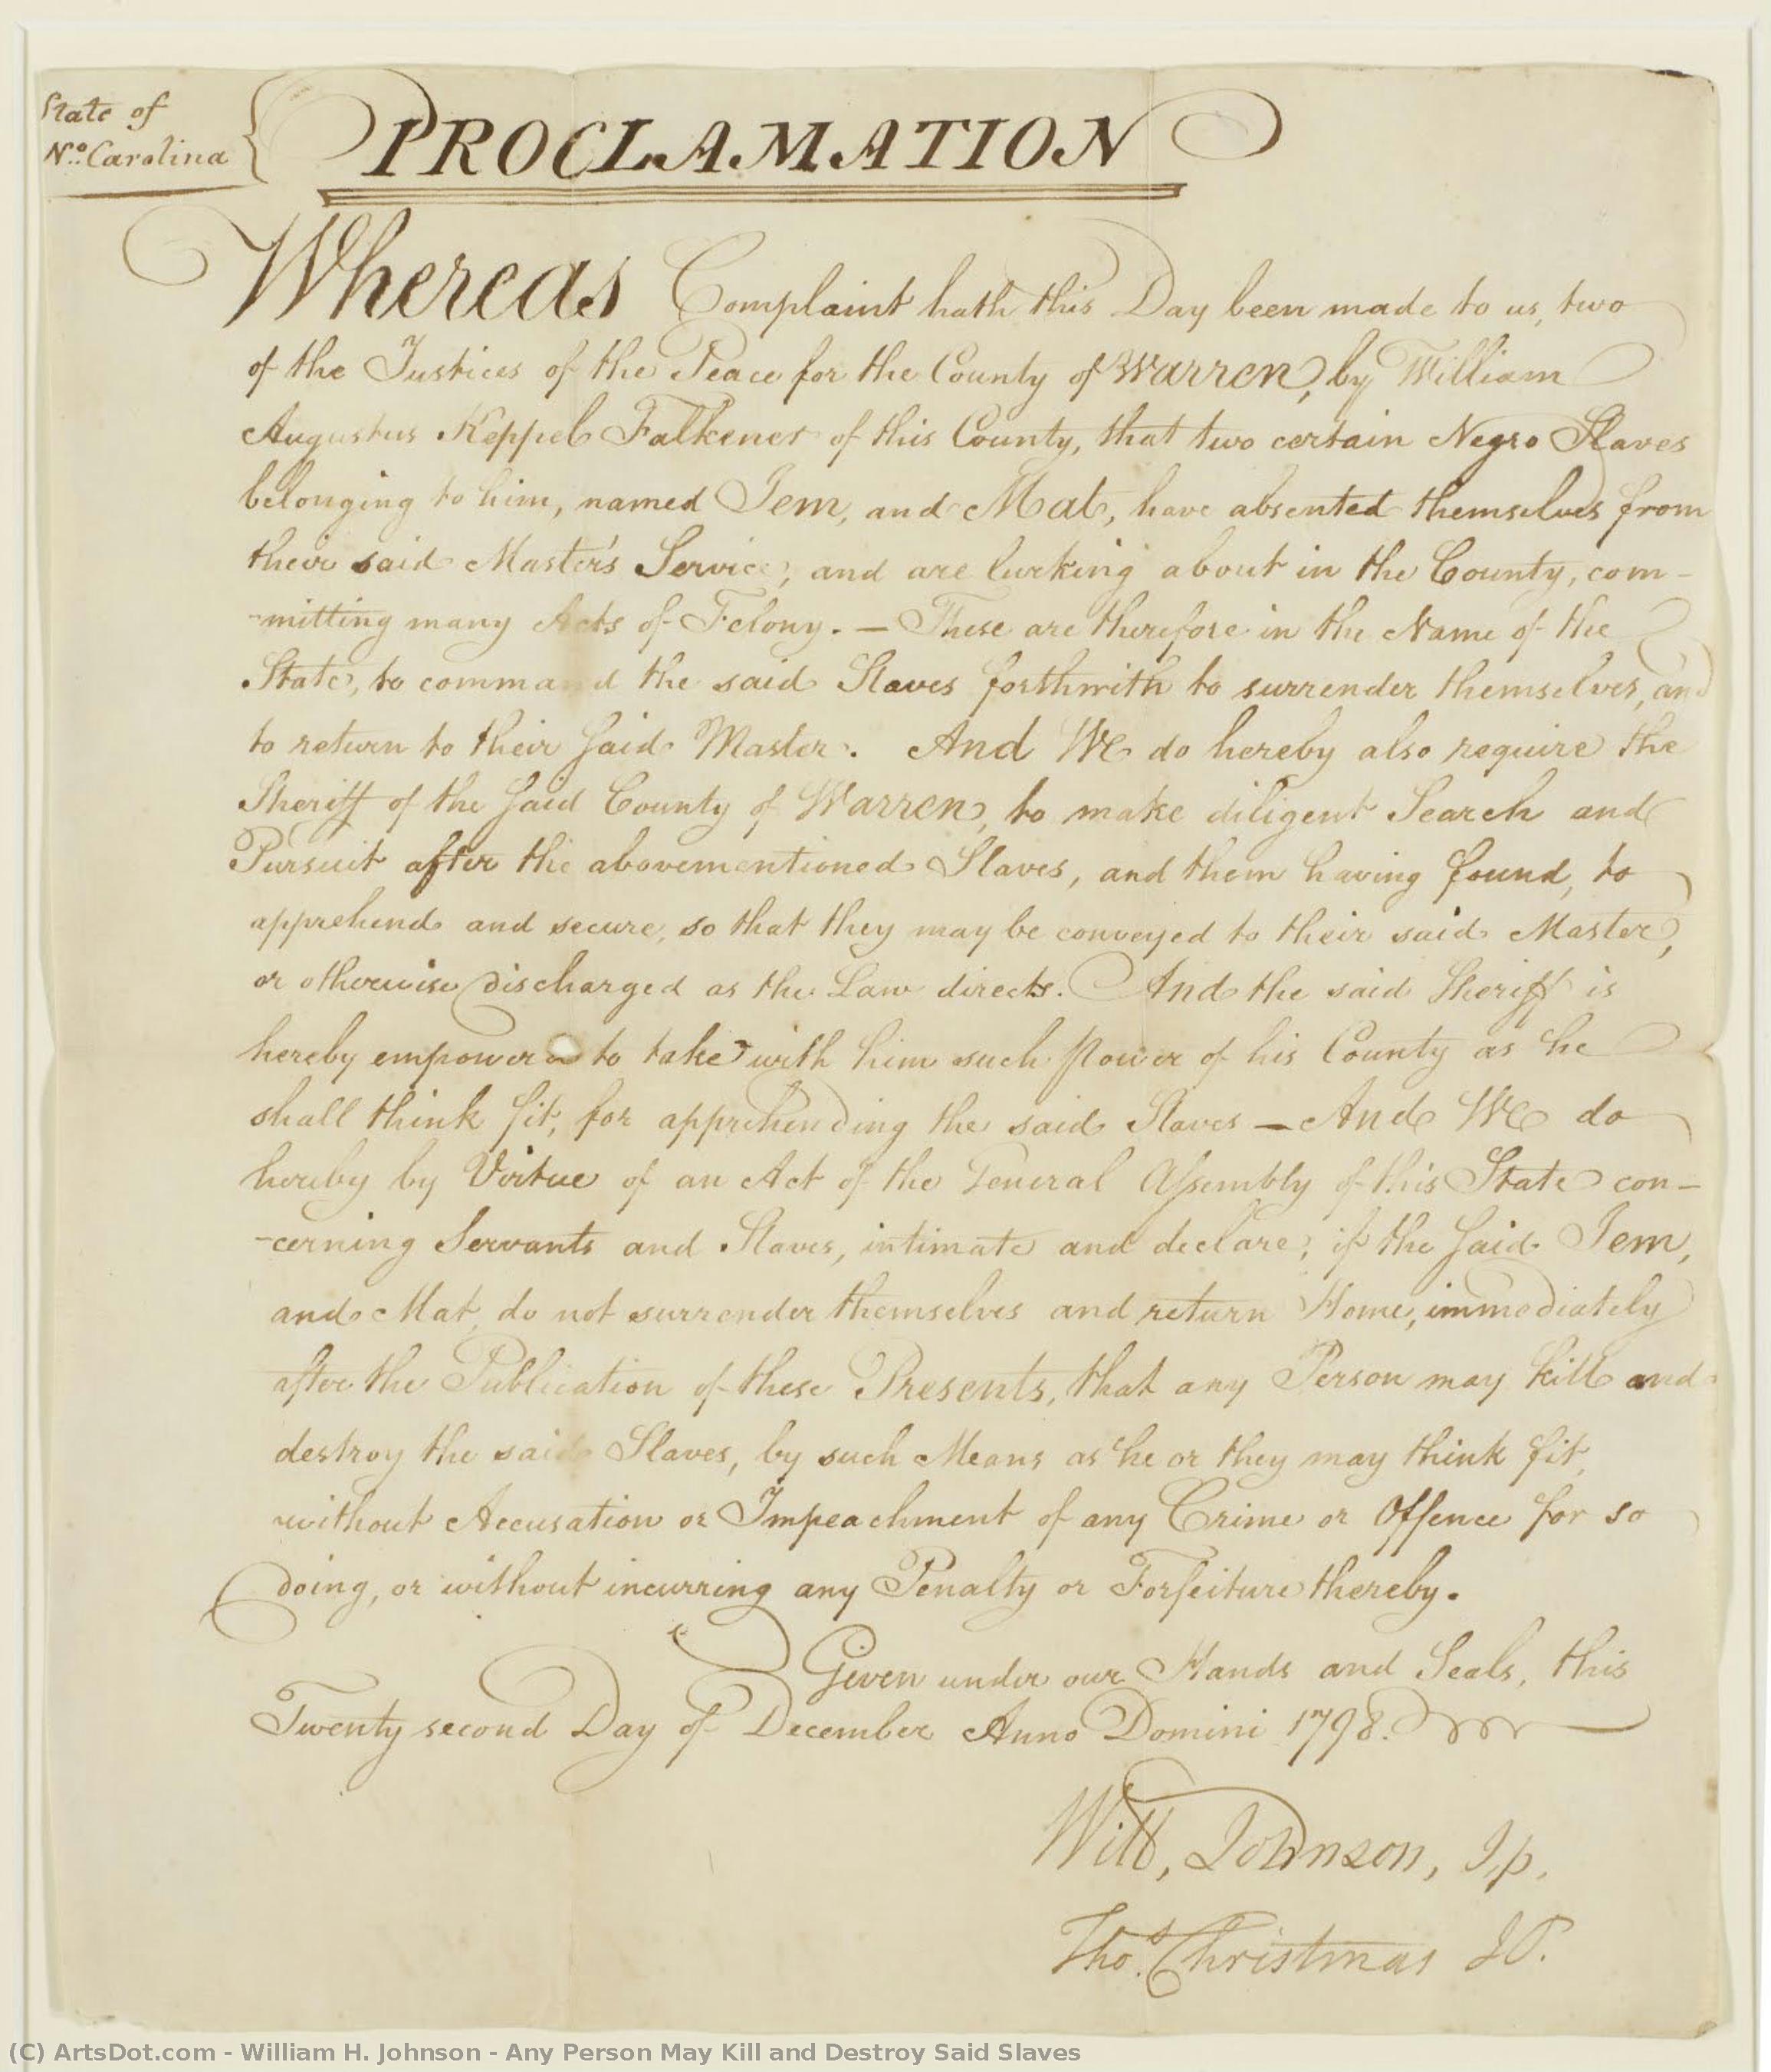 State of
No. Carolina
PROCLAMATION
Whereas Complaint hath this Day been made to us, two
of the Justices of the Peace for the County of Warren, by William
Augustus Keppel Falkener of this County, that two certain Negro Slaves
belonging to him, named Jem, and Mat, have absented themselves from
their said Master's Service, and are lurking about in the County, com-
-mitting many Acts of Felony. — These are therefore in the Name of the
State, to command the said Slaves forthwith to surrender themselves, and
to return to their said Master. And We do hereby also require the
Sheriff of the said County of Warren, to make diligent Search and
Pursuit after the abovementioned Slaves, and them having found, to
apprehend and secure, so that they may be conveyed to their said Master,
or otherwise discharged as the Law directs. And the said Sheriff is
hereby empowered to take with him such Power of his County as he
shall think fit, for apprehending the said Slaves — And We do
hereby by Virtue of an Act of the General Assembly of this State con-
-cerning Servants and Slaves, intimate and declare, if the said Jem,
and Mat, do not surrender themselves and return Home, immediately
after the Publication of these Presents, that any Person may kill and
destroy the said Slaves, by such Means as he or they may think fit,
without Accusation or Impeachment of any Crime or Offence for so
doing, or without incurring any Penalty or Forfeiture thereby.
Given under our Hands and Seals, this
Twenty second Day of December Anno Domini 1798.
Will, Johnson, Jp.
Tho.s Christmas JP.
(C) ArtsDot.com - William H. Johnson - Any Person May Kill and Destroy Said Slaves